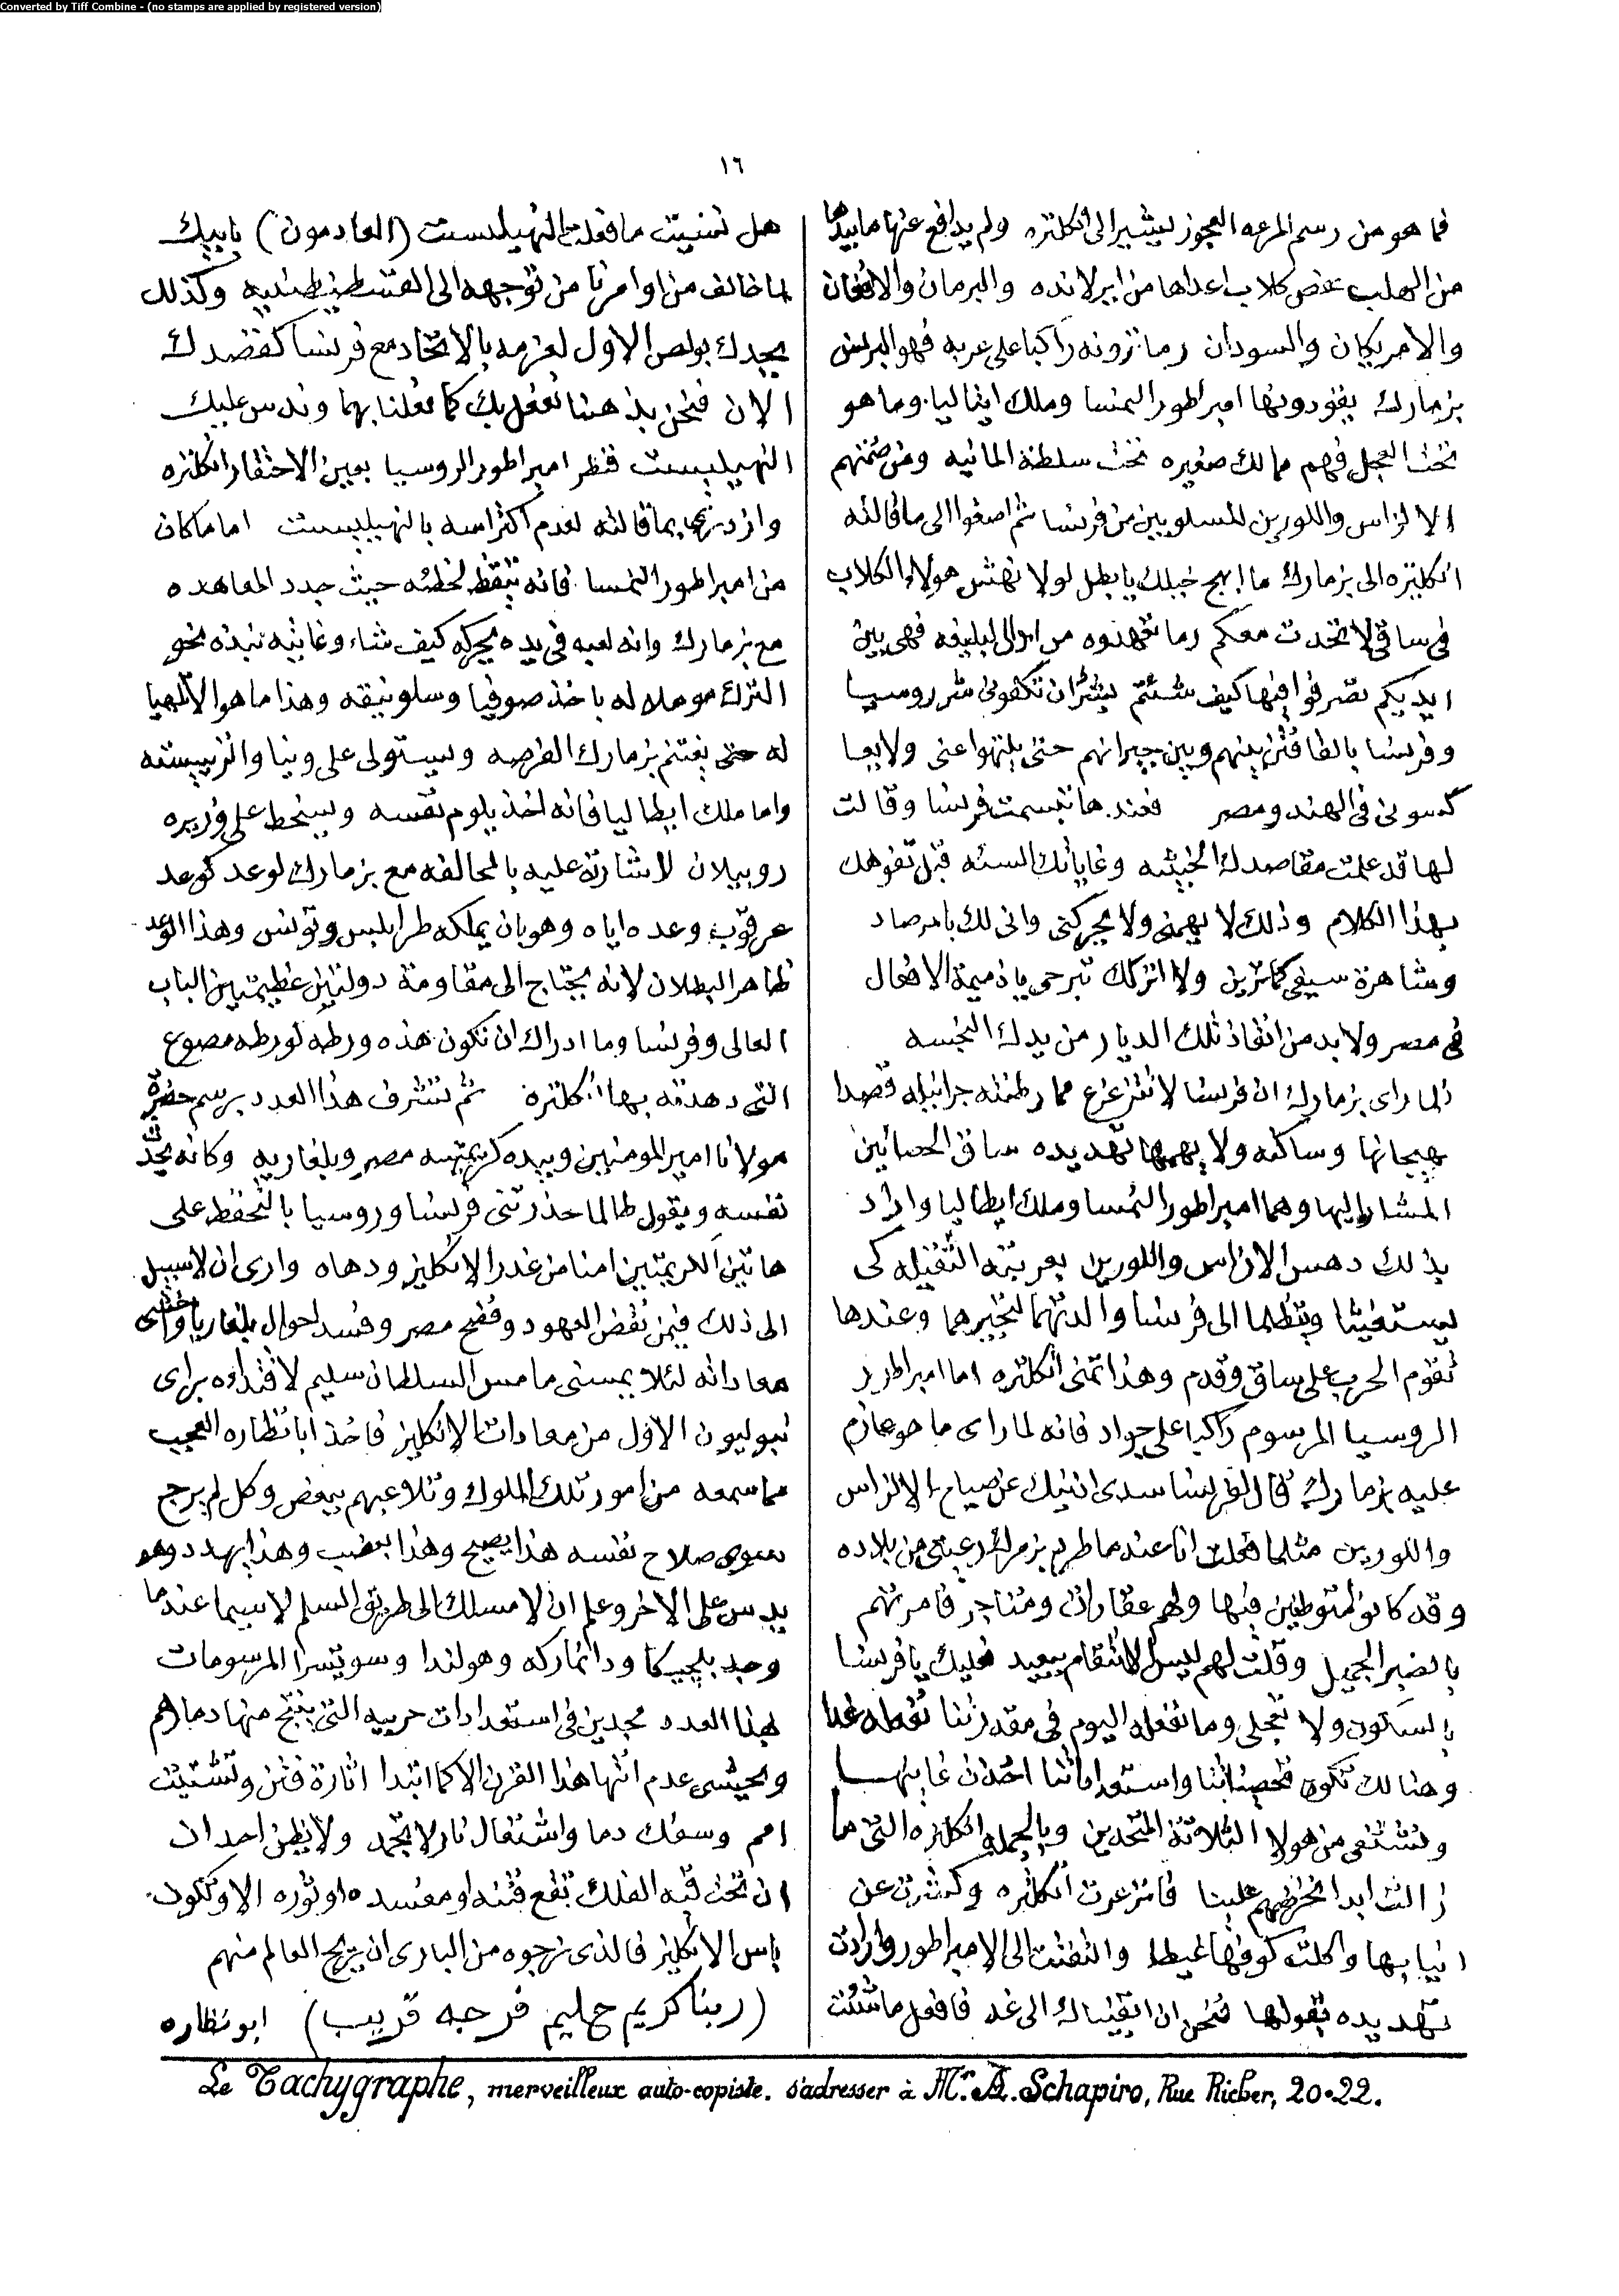 Converted by Tiff Combine - (no stamps are applied by registered version)
١٦
فما هو من رسم المرعه العجوز ليشير الى انكلتره ولم يدافع عنها ما بيدها
من الهلب عض كلاب اعداها من ايرلانده والبرمان والافغان
والامريكان والسودان وما تزونه راكبا على عربه فهو البرنس
بزمارك يقودونها امبراطور النمسا وملك ايتاليا وما هو
تحت العجل فهم ممالك صغيره تحت سلطة المانيه ومن ضمنهم
الالزاس واللورين المسلوبين من فرنسا ثم اصغوا الى ما قالته
انكلتره الى بزمارك ما ابهج خيلك يا بطل لولا نهش هولاء الكلاب
فى ساقى لاتحدت معكم وما تعهدوه من اموالى لبليغه فهى بين
ايديكم تصرفوا فيها كيف شئتم بشرط ان تكفونى شر روسيا
وفرنسا بالقا فتن بينهم وبين جيرانهم حتى يلتهوا عنى ولا يعا
كسونى فى الهند ومصر فعندها تبسمت فرنسا وقالت
لها قد علمت مقاصدك الخبيثه وغاياتك السئه قبل تفوهك
بهذا الكلام وذلك لا يهمنى ولا يحركنى وانى لك بامرصاد
وشاهرة سيفى كما ترين ولا اتركك تبرحى يا ذميمة الافعال
فى مصر ولا بد من انقاذ تلك الديار من يدك النجسه
فلما راى بزمارك ان فرنسا لا تتزعزع مما رطنته جرانيله قصدا
هيجانها وساكنه ولا يهمها تهديده ساق الحصانين
المشار اليها وهما امبراطور النمسا وملك ايطاليا واراد
بذلك دهس الالزاس واللورين بعربته الثقيله كى
يستغيثا ويتظلما الى فرنسا والدتهما لتجيرهما وعندها
تقوم الحرب على ساق وقدم وهذا تمنى انكلتره اما امبراطور
الروسيا المرسوم راكبا على جواد فانه لما راى ما هو عازم
عليه بزمارك قال لفرنسا سدى اذنيك عن صياح الالزاس
واللورين مثلما فعلت انا عندما طرد بزمرك رعيتى من بلاده
وقد كانوا متوطنين فيها ولهم عقارات ومتاجر فامرتهم
بالصبر الجميل وقلت لهم ليس الانتقام ببعيد فعليك يا فرنسا
بالسكون ولا تعجلى وما نفعله اليوم فى مقدرتنا نفعله غدا
وهنالك تكون تحصيناتنا واستعداداتنا اخذن غايتها
ونشتفى من هولا الثلاثة المتحدين وبالجمله انكلتره التى ما
زالت ابدا تحرضهم علينا فانزعرت انكلتره وكشرت عن
انيابها واكلت كفوفها غيظا والتفتت الى الامبراطور وارادت
تهديده بقولها نحن ان ابقيناك الى غد فافعل ما شئت
هل نسيت ما فعلته النهيليست (العادمون) بابيك
لما خالف من اوامرنا من توجهه الى القسطنطينيه وكذلك
بجدك بولص الاول لعزمه بالاتحاد مع فرنسا كقصدك
الان فنحن بذهبنا نفعل بك كما فعلنا بهما وندس عليك
النهيليست فنظر امبراطور الروسيا بعين الاحتقار انكلتره
وازدرى بما قالته لعدم اكتراسه بالنهيليست اما ما كان
من امبراطور النمسا فانه تيقظ لخطئه حيث جدد المعاهده
مع بزمارك وانه لعبه فى يده يحركه كيف شاء وغايته نبذه نحو
الترك موملا له باخذ صوفيا وسلونيقه وهذا ما هو الا تلهيا
له حتى يغتنم بزمارك الفرصه ويستولى على وينا والتريسته
واما ملك ايطاليا فانه اخذ يلوم نفسه ويسخط على وزيره
روبيلان لاشارته عليه بالمحالفه مع بزمارك لوعد كوعد
عرقوب وعده اياه وهو بان يملكه طرابلس وتونس وهذا الوعد
ظاهر البطلان لانه يحتاج الى مقاومة دولتين عظيمتين الباب
العالى وفرنسا وما ادراك ان تكون هذه ورطه كورطه مصوع
التى دهدته بها انكلتره ثم تشرف هذا العدد برسم حضرة
مولانا امير المومنين وبيده كريمتيه مصر وبلغاريه وكانه يحدث
نفسه ويقول طالما حذرتنى فرنسا وروسيا بالتحفظ على
هاتين الكريمتين امنا من غدر الانكليز ودهاه وارى ان لا سبيل
الى ذلك فيمن نقض العهود وفقح مصر وفسد احوال بلغاريا واخشى
معاداته لئلا يمسنى ما مس السلطان سليم لاقتداءه براى
نبوليون الاول من معادات الانكليز فاخذ ابا نظاره العجب
مما سمعه من امور تلك الملوك وتلاعبهم ببعض وكل لم يرج
سوى صلاح نفسه هذا يصيح وهذا يغضب وهذا يهدد وهو
يدس على الاخر وعلم ان لا مسلك الى طريق السلم لا سيما عندما
وجد بلجيكا ودانماركه وهولندا وسويتسرا المرسومات
بهذا العدد مجدين فى استعدادات حربيه التى ينتج منها دمارهم
ويخشى عدم انتها هذا القرن الا كما ابتدا اثارة فتن وتشتيت
امم وسفك دما واشتعال نار لا تخمد ولا يظن احد ان
ان تحت قبه الفلك تقع فتنه او مفسده او ثوره الا وتكون
باس الانكليز فالذى نرجوه من البارى ان يريح العالم منهم
(ربنا كريم حليم فرجه قريب) ابو نظاره
Le Tachygraphe, merveilleux auto-copiste. S'adresser à Mr. A. Schapiro, Rue Richer, 20-22.